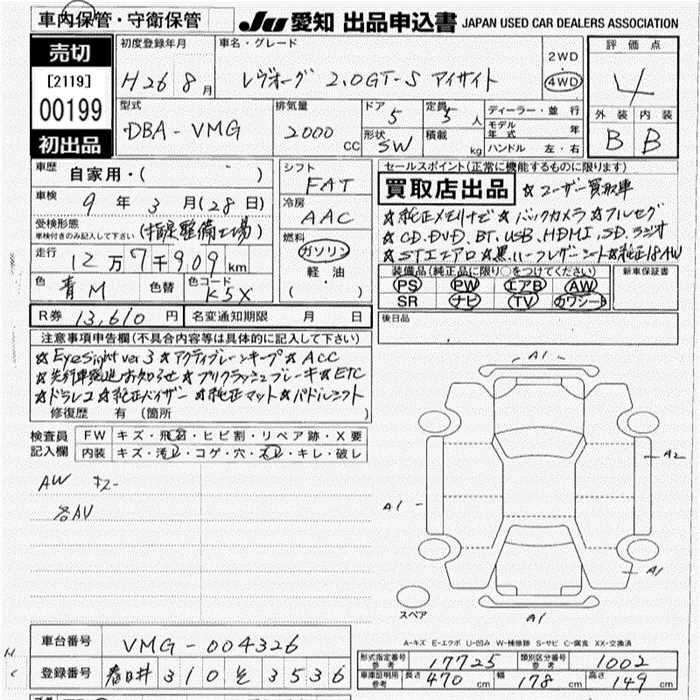 車内保管・守衛保管
JU 愛知 出品申込書 JAPAN USED CAR DEALERS ASSOCIATION
売切
[2119]
00199
初出品
初度登録年月
H26 8月
車名・グレード
レヴォーグ 2.0GT-S アイサイト
2WD
4WD
評価点
4
外装 内装
B B
型式
DBA-VMG
排気量
2000 CC
ドア
5
形状
SW
定員
5人
積載
kg
ディーラー・並行
モデル年式 年
ハンドル 左・右
車歴
自家用・( )
車検
9年3月(28日)
受検形態
車検付きのみ記入して下さい (指定整備工場)
走行
12万7千909km
色
青M
色替
色コード
K5X
シフト
FAT
冷房
AAC
燃料
ガソリン
軽油
( )
セールスポイント(正常に機能するものに限ります)
買取店出品 ☆ユーザー買取車
☆純正メモリナビ☆バックカメラ☆フルセグ
☆CD.DVD.BT.USB.HDMI.SD.ラジオ
☆STエアロ☆黒ハーフレザーシート☆純正18AW
装備品(純正品に限り○をつけてください)
PS PW エアB AW
SR ナビ TV カワシート
新車保証書
後日品
R券 13,610円
名変通知期限 月 日
注意事項申告欄(不具合内容等は具体的に記入して下さい)
☆EyeSight ver.3☆アクティブレーンキープ☆ACC
☆先行車発進お知らせ☆プリクラッシュブレーキ☆ETC
☆ドラレコ☆純正バイザー☆純正マット☆パドルシフト
修復歴 有(箇所
検査員記入欄
FW キズ・飛石・ヒビ割・リペア跡・X要
内装 キズ・汚レ・コゲ・穴・スレ・キレ・破レ
AW キズ-
各AU
A1
A2
A1
A1
A1
スペア
A-キズ E-エクボ U-凹み W-補修跡 S-サビ C-腐食 XX-交換済
車台番号
VMG-004326
登録番号
春日井 310 そ 3536
形式指定番号 参考
17725
類別区分番号 参考
1002
車庫証明用 参考
長さ 470cm 幅 178cm 高さ 149cm